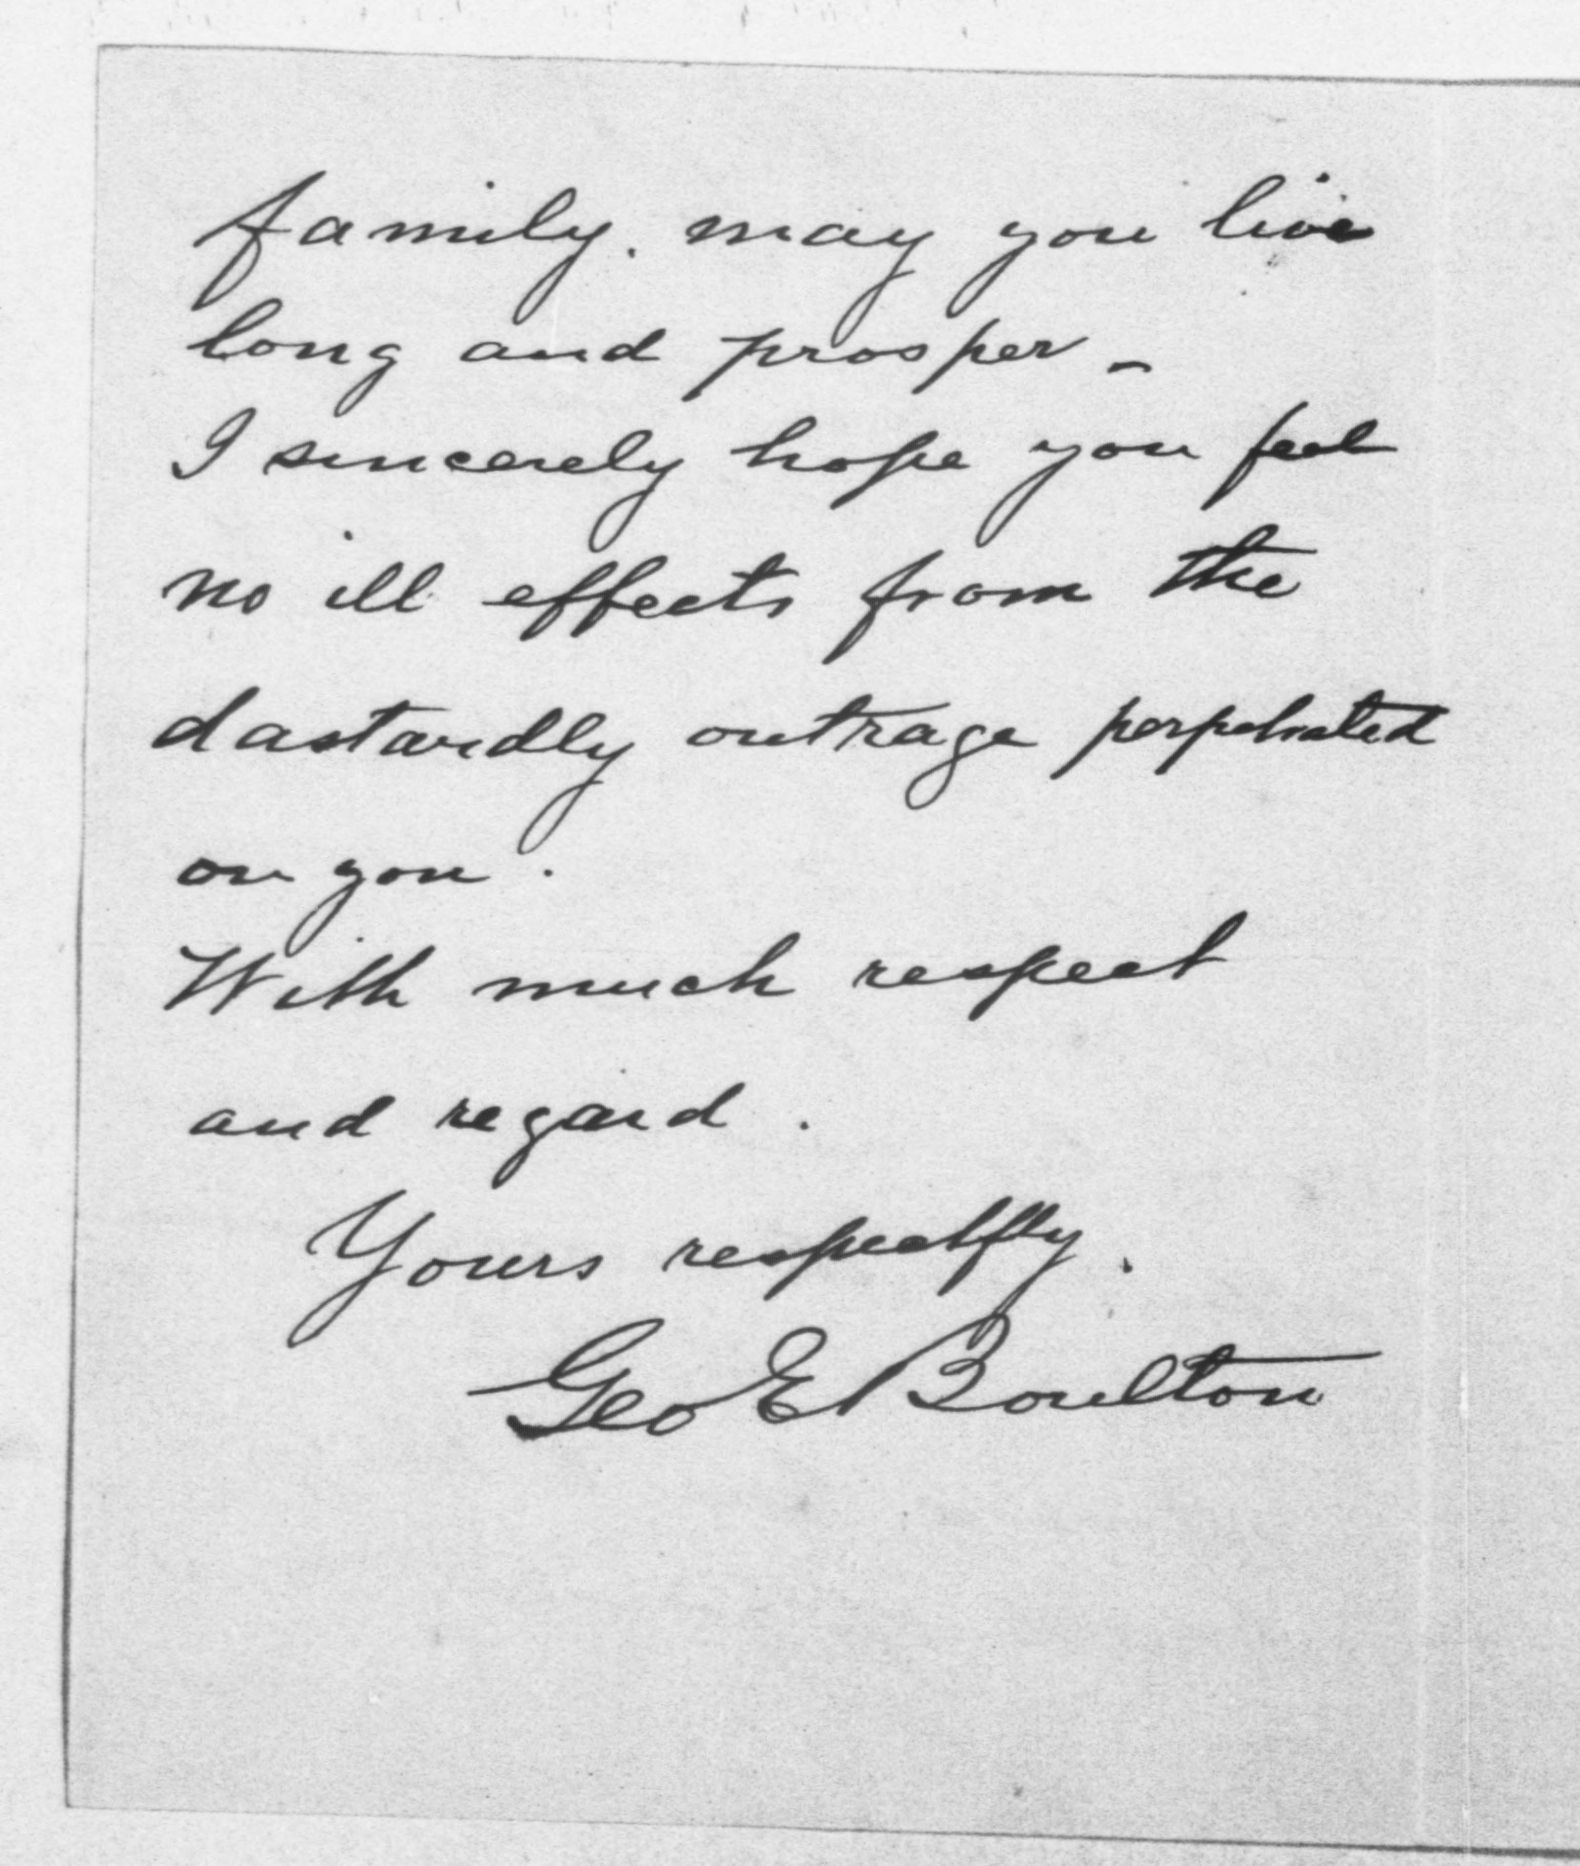 family. may you live
long and prosper –
I sincerely hope you feel
no ill effects from the
dastardly outrage perpetrated
on you.
With much respect
and regard.
Yours respectfly.
Geo E Boulton